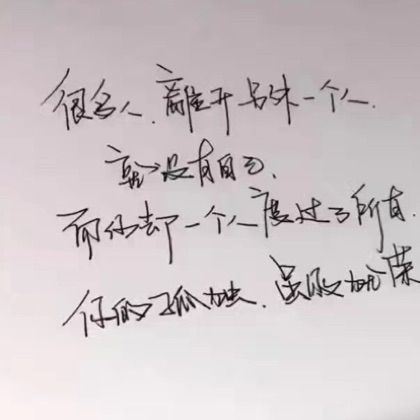 很多人,离开另外一个人,
就没有自己,
而你却一个人度过了所有,
你的孤独,虽败犹荣